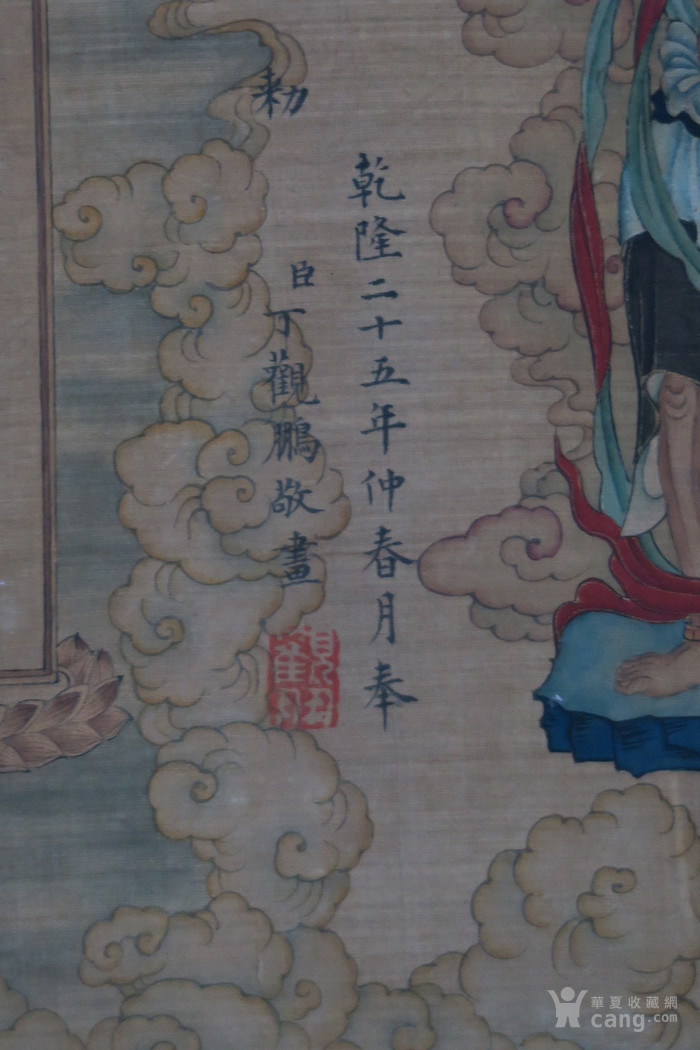 乾隆二十五年仲春月奉
勅
臣丁觀鵬敬畫
華夏收藏網
cang.com